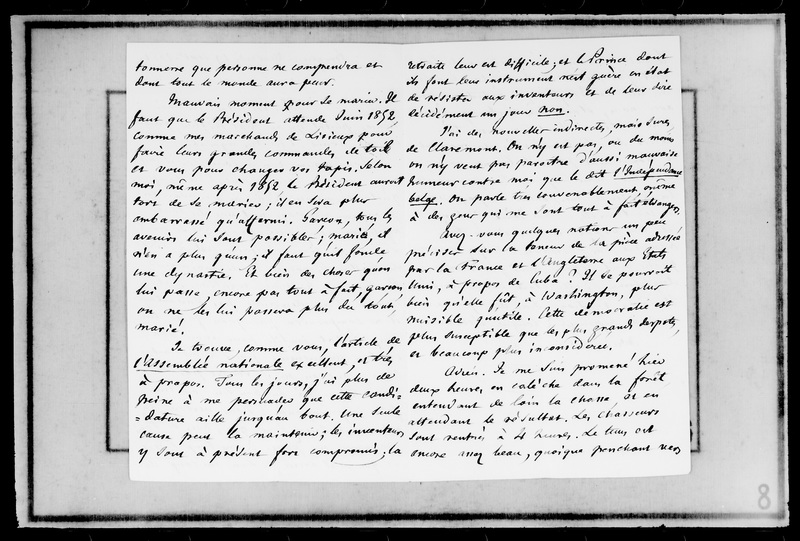 tonnerre que personne ne comprendra et
dont tout le monde aura peur.
Mauvais moment pour se marier. Il
faut que le Président attende Juin 1852,
comme mes marchands de Lisieux pour
faire leurs grandes commandes de toile
et vous pour changer vos tapis. Selon
moi, même après 1852 le Président auroit
tort de se marier; il en sera plus
embarrassé qu'affermi. Garçon, tous les
avenirs lui sont possibles; marié, il
n'en a plus qu'un; il faut qu'il fonde
une dynastie. Et bien des choses qu'on
lui passe, encore pas tout à fait, garçon
on ne les lui passera plus du tout,
marié.
Je trouve, comme vous, l'article de
l'Assemblée nationale excellent, et très
à propos. Tous les jours, j'ai plus de
peine à me persuader que cette candi-
-dature aille jusqu'au bout. Une seule
cause peut la maintenir; les inventeurs
y sont à présent fort compromis; la
retraite leur est difficile; et le Prince dont
ils font leur instrument n'est guère en état
de résister aux inventeurs et de leur dire
décidément un jour non.
J'ai des nouvelles indirectes, mais sures,
de Claremont. On n'y est pas, ou du moins
on n'y veut pas paroître d'aussi mauvaise
humeur contre moi que le dit l'Indépendance
belge. On parle très convenablement, même
à des gens qui me sont tout à fait étrangers.
Avez-vous quelques notions un peu
précises sur la teneur de la pièce adressée
par la France et l'Angleterre aux Etats
Unis, à propos de Cuba? Il se pourroit
bien qu'elle fût, à Washington, plus
nuisible qu'utile. Cette démocratie est
plus susceptible que les plus grands despotes,
et beaucoup plus inconsidérée.
Adieu. Je me suis promené hier
deux heures en calèche dans la forêt
entendant de loin la chasse, et en
attendant le résultat. Les chasseurs
sont rentrés à 4 heures. Le tems est
encore assez beau, quoique penchant vers
8